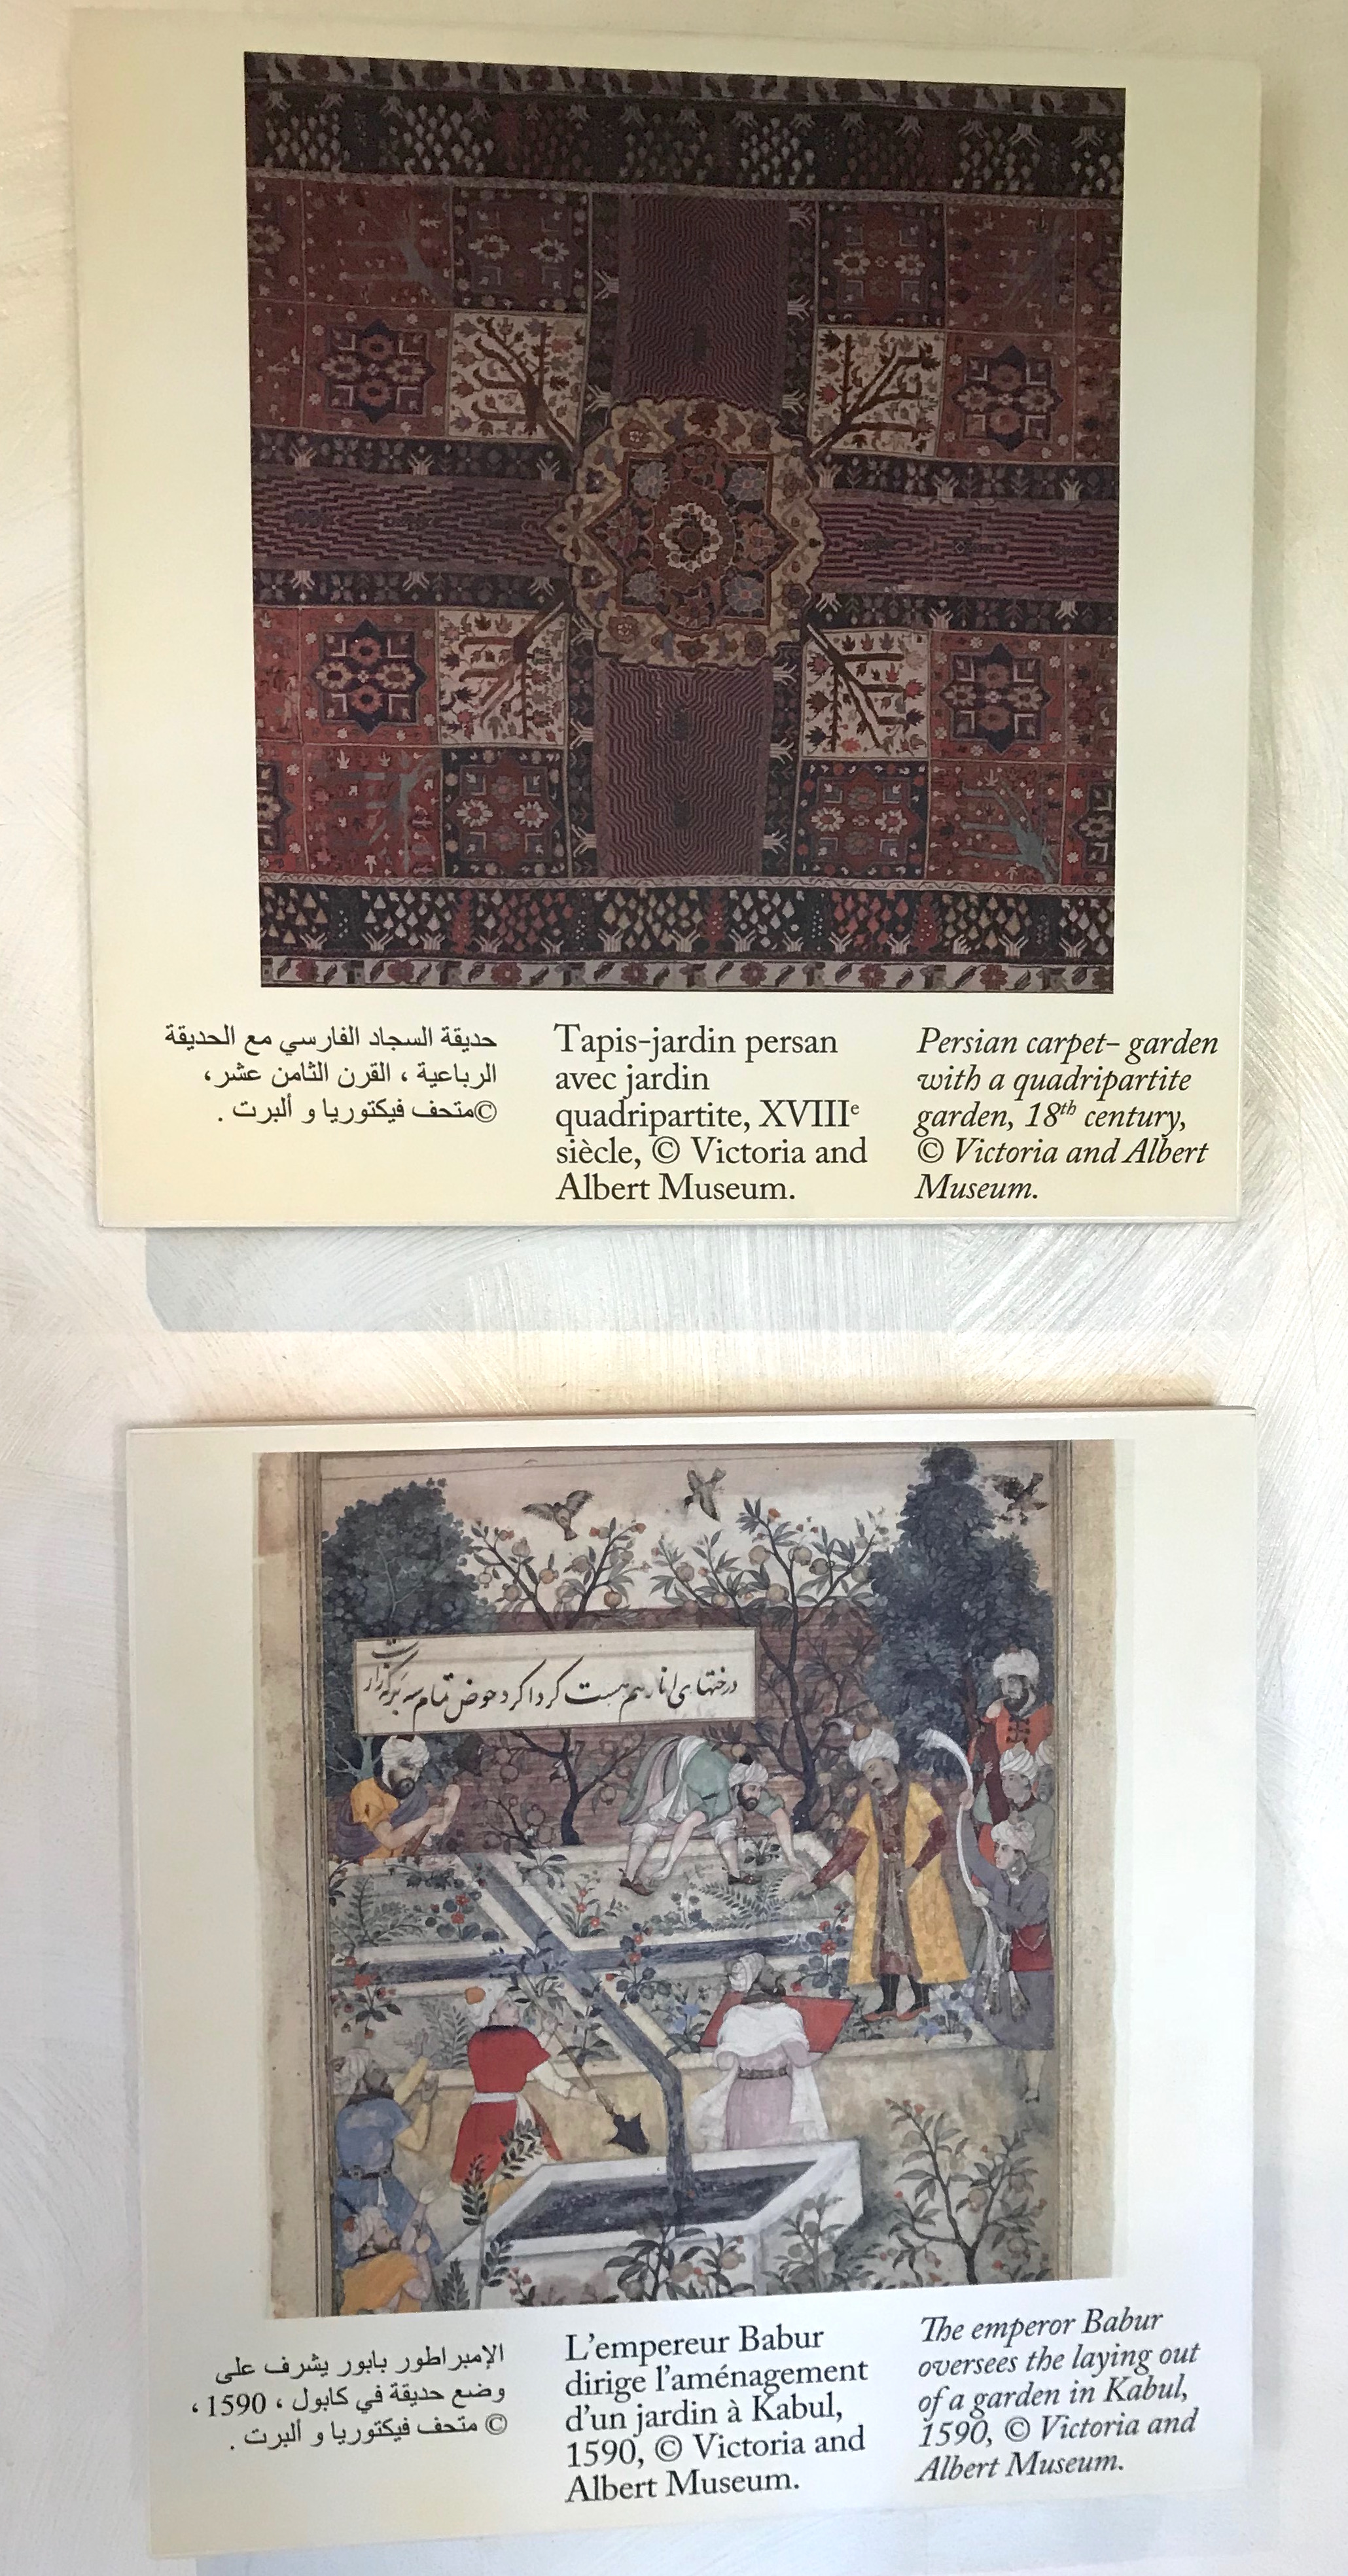 حديقة السجاد الفارسي مع الحديقة
الرباعية ، القرن الثامن عشر،
©متحف فيكتوريا و ألبرت .
Tapis-jardin persan
avec jardin
quadripartite, XVIIIe
siècle, © Victoria and
Albert Museum.
Persian carpet- garden
with a quadripartite
garden, 18th century,
© Victoria and Albert
Museum.
درختهای انار هم هست کردا کرد حوض تمام سه برکه زار
ست
الإمبراطور بابور يشرف على
وضع حديقة في كابول ، 1590 ،
© متحف فيكتوريا و ألبرت .
L'empereur Babur
dirige l'aménagement
d'un jardin à Kabul,
1590, © Victoria and
Albert Museum.
The emperor Babur
oversees the laying out
of a garden in Kabul,
1590, © Victoria and
Albert Museum.